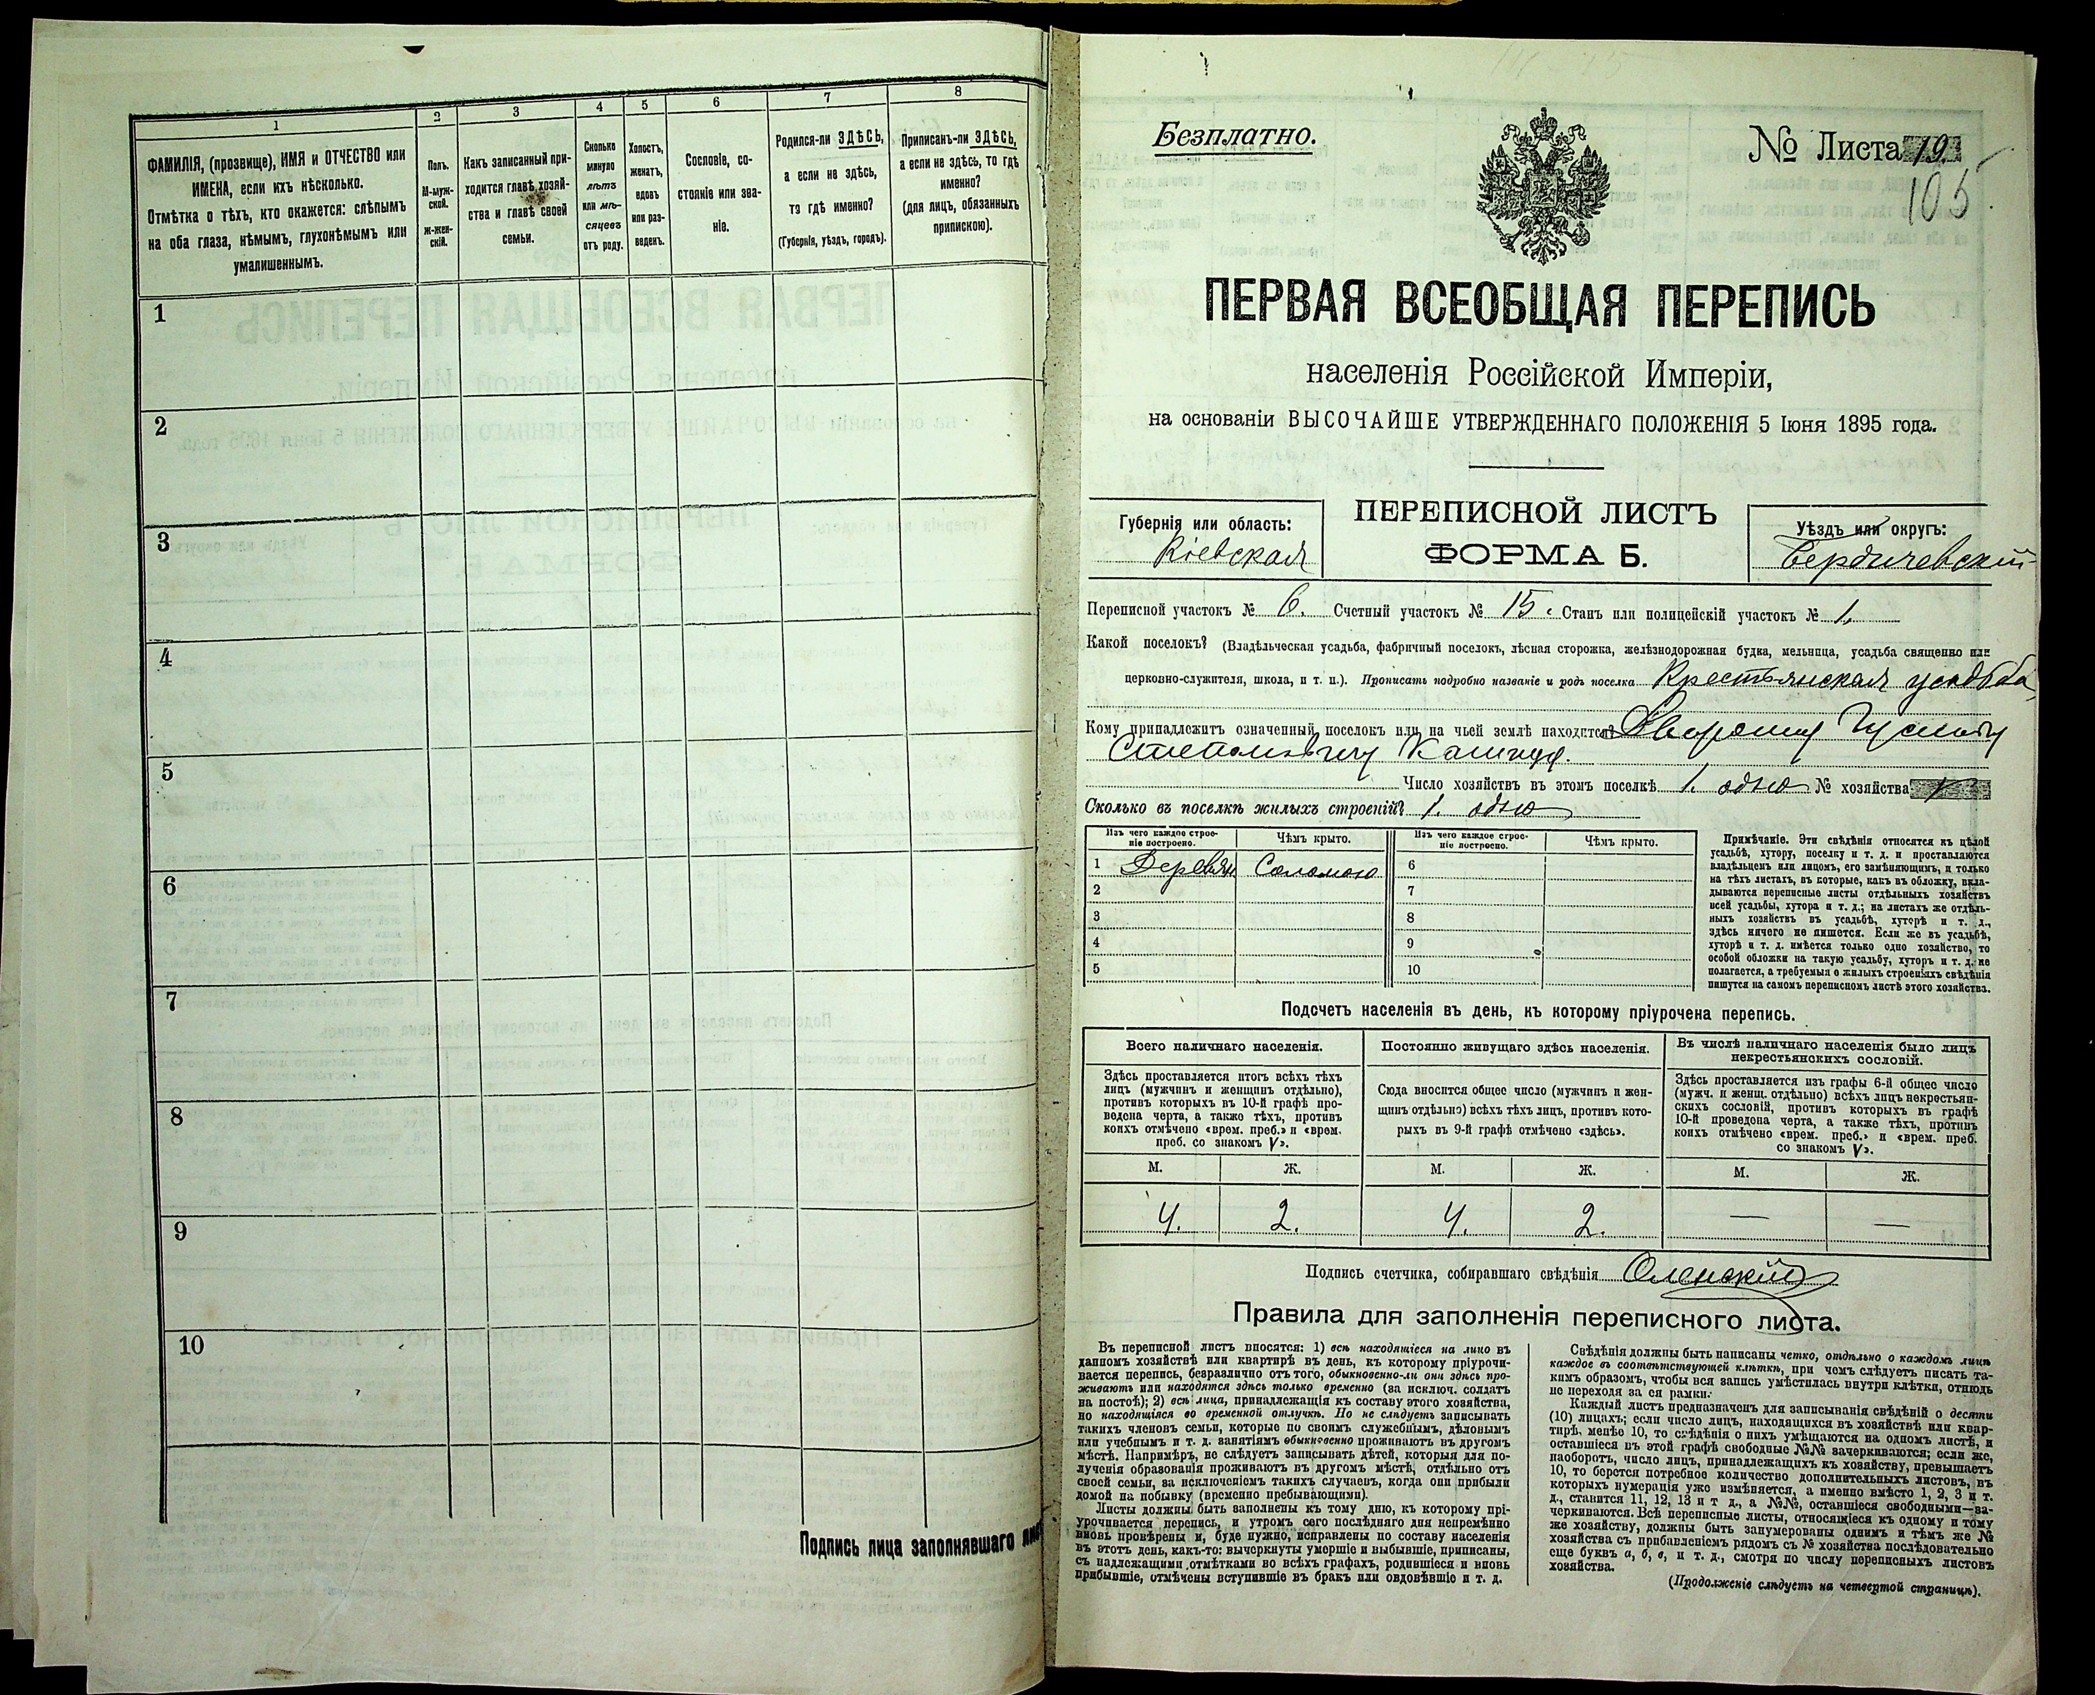 1
2
3
4
5
6
7
8
ФАМИЛІЯ, (прозвище), ИМЯ и ОТЧЕСТВО или
ИМЕНА, если ихъ нѣсколько.
Отмѣтка о тѣхъ, кто окажется: слѣпымъ
на оба глаза, нѣмымъ, глухонѣмымъ или
умалишеннымъ.
Полъ.
М-муж-
ской.
Ж-жен-
скій.
Какъ записанный при-
ходится главѣ хозяй-
ства и главѣ своей
семьи.
Сколько
минуло
лѣтъ
или мѣ-
сяцевъ
отъ роду.
Холостъ,
женатъ,
вдовъ
или раз-
веденъ.
Сословіе, со-
стояніе или зва-
ніе.
Родился-ли ЗДѢСЬ,
а если не здѣсь,
то гдѣ именно?
(Губернія, уѣздъ, городъ).
Приписанъ-ли ЗДѢСЬ,
а если не здѣсь, то гдѣ
именно?
(для лицъ, обязанныхъ
припискою).
1
2
3
4
5
6
7
8
9
10
Подпись лица заполнявшаго
Безплатно.
№ Листа 19
105
ПЕРВАЯ ВСЕОБЩАЯ ПЕРЕПИСЬ
населенія Россійской Имперіи,
на основаніи ВЫСОЧАЙШЕ УТВЕРЖДЕННАГО ПОЛОЖЕНІЯ 5 Іюня 1895 года.
Губернія или область:
Кіевская
ПЕРЕПИСНОЙ ЛИСТЪ
ФОРМА Б.
Уѣздъ или округъ:
Бердичевскій
Переписной участокъ № 6. Счетный участокъ № 15. Станъ или полицейскій участокъ № 1.
Какой поселокъ? (Владѣльческая усадьба, фабричный поселокъ, лѣсная сторожка, желѣзнодорожная будка, мельница, усадьба священно или
церковно-служителя, школа, и т. п.). Прописать подробно названіе и родъ поселка Крестьянская усадьба
Кому принадлежитъ означенный поселокъ или на чьей землѣ находится?
Число хозяйствъ въ этомъ поселкѣ 1. одно № хозяйства
Сколько въ поселкѣ жилыхъ строеній? 1. одно
Изъ чего каждое строе-
ніе построено.
Чѣмъ крыто.
Изъ чего каждое строе-
ніе построено.
Чѣмъ крыто.
1 Деревян. Соломою
2
3
4
5
6
7
8
9
10
Примѣчаніе. Эти свѣдѣнія относятся къ цѣлой
усадьбѣ, хутору, поселку и т. д. и проставляются
владѣльцемъ или лицомъ, его замѣняющимъ, и только
на тѣхъ листахъ, въ которые, какъ въ обложку, вкла-
дываются переписные листы отдѣльныхъ хозяйствъ
всей усадьбы, хутора и т. д.; на листахъ же отдѣль-
ныхъ хозяйствъ въ усадьбѣ, хуторѣ и т. д.,
здѣсь ничего не пишется. Если же въ усадьбѣ,
хуторѣ и т. д. имѣется только одно хозяйство, то
особой обложки на такую усадьбу, хуторъ и т. д. не
полагается, а требуемыя о жилыхъ строеніяхъ свѣдѣнія
пишутся на самомъ переписномъ листѣ этого хозяйства.
Подсчетъ населенія въ день, къ которому пріурочена перепись.
Всего наличнаго населенія.
Здѣсь проставляется итогъ всѣхъ тѣхъ
лицъ (мужчинъ и женщинъ отдѣльно),
противъ которыхъ въ 10-й графѣ про-
ведена черта, а также тѣхъ, противъ
коихъ отмѣчено «врем. преб.» и «врем.
преб. со знакомъ V».
Постоянно живущаго здѣсь населенія.
Сюда вносится общее число (мужчинъ и жен-
щинъ отдѣльно) всѣхъ тѣхъ лицъ, противъ кото-
рыхъ въ 9-й графѣ отмѣчено «здѣсь».
Въ числѣ наличнаго населенія было лицъ
некрестьянскихъ сословій.
Здѣсь проставляется изъ графы 6-й общее число
(мужч. и женщ. отдѣльно) всѣхъ лицъ некрестьян-
скихъ сословій, противъ которыхъ въ графѣ
10-й проведена черта, а также тѣхъ, противъ
коихъ отмѣчено «врем. преб.» и «врем. преб.
со знакомъ V».
М. Ж. М. Ж. М. Ж.
4. 2. 4. 2. — —
Подпись счетчика, собиравшаго свѣдѣнія Оленскій
Правила для заполненія переписного листа.
Въ переписной листъ вносятся: 1) всѣ находящіеся на лицо въ
данномъ хозяйствѣ или квартирѣ въ день, къ которому пріурочи-
вается перепись, безразлично отъ того, обыкновенно-ли они здѣсь про-
живаютъ или находятся здѣсь только временно (за исключ. солдатъ
на постоѣ); 2) всѣ лица, принадлежащія къ составу этого хозяйства,
но находящіяся во временной отлучкѣ. Но не слѣдуетъ записывать
такихъ членовъ семьи, которые по своимъ служебнымъ, дѣловымъ
или учебнымъ и т. д. занятіямъ обыкновенно проживаютъ въ другомъ
мѣстѣ. Напримѣръ, не слѣдуетъ записывать дѣтей, которыя для по-
лученія образованія проживаютъ въ другомъ мѣстѣ, отдѣльно отъ
своей семьи, за исключеніемъ такихъ случаевъ, когда они прибыли
домой на побывку (временно пребывающими).
Листы должны быть заполнены къ тому дню, къ которому прі-
урочивается перепись, и утромъ сего послѣдняго дня непремѣнно
вновь провѣрены и, буде нужно, исправлены по составу населенія
въ этотъ день, какъ-то: вычеркнуты умершіе и выбывшіе, приписаны,
съ надлежащими отмѣтками во всѣхъ графахъ, родившіеся и вновь
прибывшіе, отмѣчены вступившіе въ бракъ или овдовѣвшіе и т. д.
Свѣдѣнія должны быть написаны четко, отдѣльно о каждомъ лицѣ
каждое въ соотвѣтствующей клѣткѣ, при чемъ слѣдуетъ писать та-
кимъ образомъ, чтобы вся запись умѣстилась внутри клѣтки, отнюдь
не переходя за ея рамки.
Каждый листъ предназначенъ для записыванія свѣдѣній о десяти
(10) лицахъ; если число лицъ, находящихся въ хозяйствѣ или квар-
тирѣ, менѣе 10, то свѣдѣнія о нихъ умѣщаются на одномъ листѣ, и
оставшіеся въ этой графѣ свободные №№ зачеркиваются; если же,
наоборотъ, число лицъ, принадлежащихъ къ хозяйству, превышаетъ
10, то берется потребное количество дополнительныхъ листовъ, въ
которыхъ нумерація уже измѣняется, а именно вмѣсто 1, 2, 3 и т.
д., ставится 11, 12, 13 и т д., а №№, оставшіеся свободными—за-
черкиваются. Всѣ переписные листы, относящіеся къ одному и тому
же хозяйству, должны быть занумерованы однимъ и тѣмъ же №
хозяйства съ прибавленіемъ рядомъ съ № хозяйства послѣдовательно
еще буквъ а, б, в, и т. д., смотря по числу переписныхъ листовъ
хозяйства.
(Продолженіе слѣдуетъ на четвертой страницѣ).